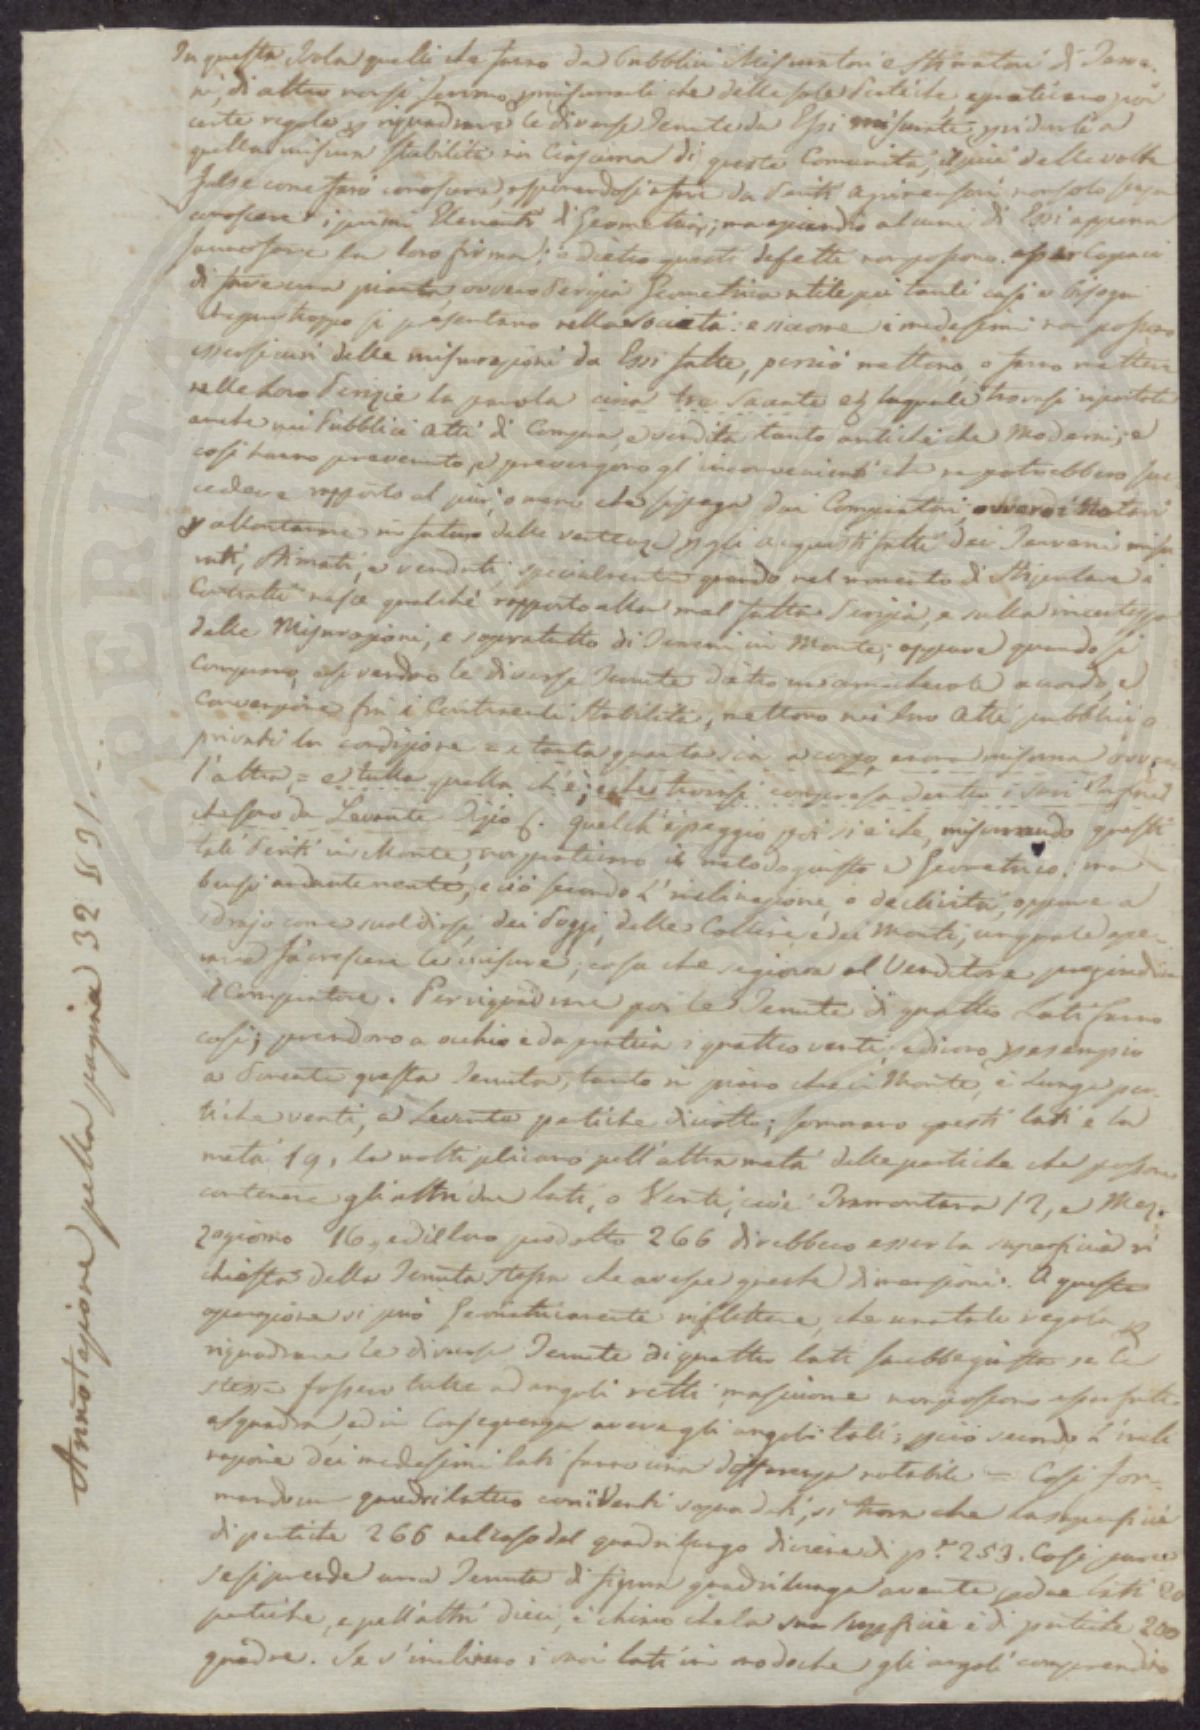 In questa Isola quelli che fanno da Pubblici Misuratori e Stimatori di Terre-
ni, di altro non si servono p misurarli che delle sole Pertiche, e praticano poi
certe regole p riquadrare le diverse Tenute da Essi misurate, p ridurle a
quella misura stabilita in Ciascuna di queste Comunità, il più delle volte
false come farò conoscere, esponendosi a fare da Periti Agrimensori non solo senza
conoscere i primi Elementi di Geometria; ma eziandio alcuni di Essi appena
sanno fare la loro firma: e dietro questi defetti non possono esser Capaci
di fare una pianta, ovvero Perizia Geometrica utile pei tanti casi e bisogni
che pur troppo si presentano nella società: e siccome i medesimi non possono
esser sicuri delle misurazioni da Essi fatte, perciò mettono, o fanno mettere
nelle loro Perizie la parola circa tre Saccate &c la quale trovasi riportata
anche nei Pubblici Atti di Compra, e vendita tanto antichi che Moderni; e
così hanno prevenuto, e prevengono gl'inconvenienti che ne potrebbero suc-
cedere rapporto al più, o meno che si paga dai Compratori, ovvero i Notari
p allontanare in futuro delle vertenze p gli acquisti fatti dei Terreni misu
rati, stimati, e venduti specialmente quando nel momento di stipulare i
Contratti nasce qualche rapporto alla mal fatta Perizia, e sulla incertezza
delle Misurazioni, e sopratutto di Terreni in Monte; oppure quando si
comprano, o si vendono le diverse Tenute dietro un amichevole accordo, e
Convenzione fra i Contraenti stabilita, mettono nei loro Atti pubblici o
privati la condizione = e tanta quanta sia a corpo, e non a misura ovvero
l'altra = e tutta quella ch'è, e che trovasi compresa dentro i suoi Confini
che sono da Levante Tizio &. Quelch'è peggio poi si è che, misurando questi
tali Periti in Monte, non praticano il metodo giusto e Geometrico; ma
bensì andantemente, e ciò secondo l'inclinazione, o declività, oppure a
sdrajo come suol dirsi, dei Poggi, delle Colline e dei Monti; un quale ope-
rare fà crescere le misure; cosa che se giova al Venditore pregiudica
il Compratore. Per riquadrare poi le Tenute di quattro Lati fanno
così; prendono a occhio e da pratica i quattro venti, e dicono p esempio
a Ponente questa Tenuta, tanto in piano che in Monte, è lunga per-
tiche venti, a Levante pertiche diciotto; sommano questi lati e la
metà 19, la moltiplicano pell'altra metà delle pertiche che possono
contenere gli altri due lati, o Venti, cioè Tramontana 12, e Mez-
zogiorno 16, ed il loro prodotto 266 direbbero esser la superficie ri
chiesta della Tenuta stessa che avesse queste dimensioni. A questa
operazione si può Geometricamente riflettere, che una tale regola p
riquadrare le diverse Tenute di quattro lati sarebbe giusta se le
stesse fossero tutte ad angoli retti, ma siccome non possono esser fatte
a squadra, ed in Conseguenza avere gli angoli tali; però secondo l'incli
nazione dei medesimi lati fanno una differenza notabile = Così for-
mando un quadrilatero coi Venti sopradetti, si trova che la superficie
di pertiche 266 nel caso del quadrilungo diviene di p.e 253. Così pure
se si prende una Tenuta di figura quadrilunga avente p due lati 20
pertiche, e pell'altri dieci, è chiaro che la sua superficie è di pertiche 200
quadre. Se s'inclinano i suoi lati in modo che gli angoli comprendino
Annotazione pella pagina 32